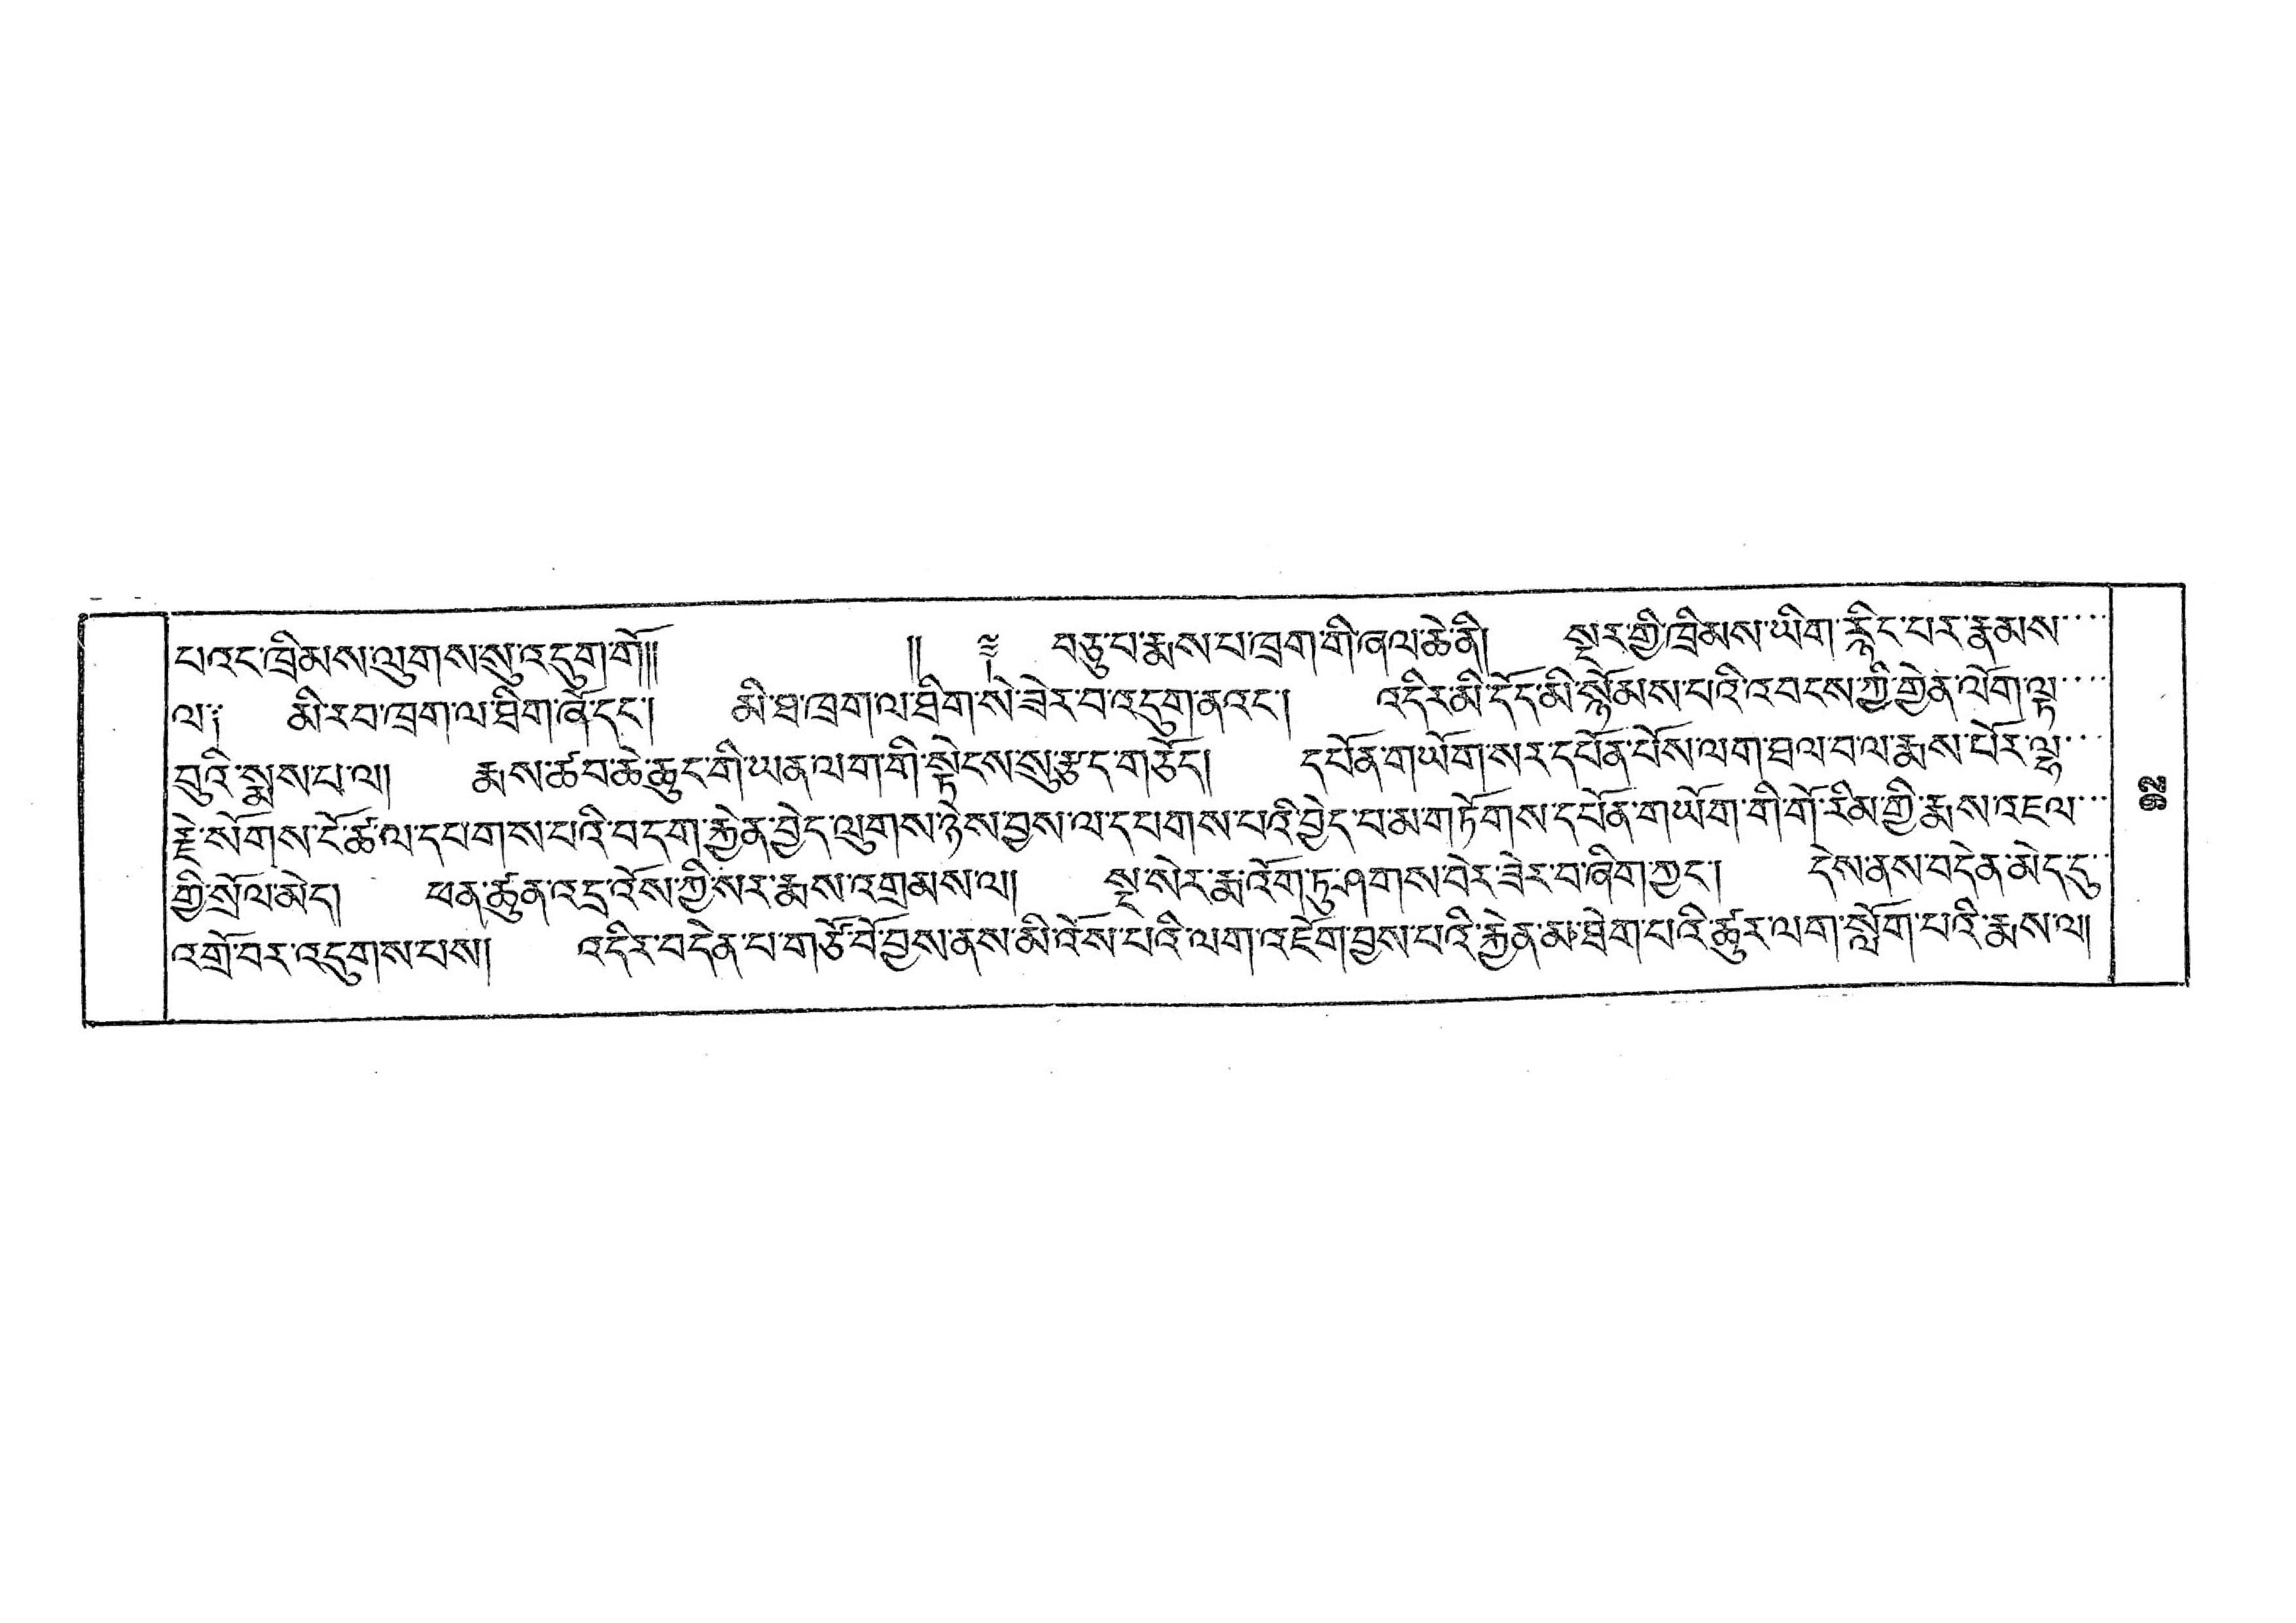 པའང་ཁྲིམས་ལུགས་སུ་འདུག་གོ།། །། ༈ བཅུ་པ་རྨས་པ་ཁྲག་གི་ཞལ་ཆེ་ནི། སྔར་གྱི་ཁྲིམས་ཡིག་རྙིང་པར་རྣམས་
ལ༑ མི་རབ་ཁྲག་ལ་ཐིག་ཞོ་དང་། མི་ཐ་ཁྲག་ལ་ཐིག་སེ་ཟེར་བ་འདུག་ནའང་། འདིར་མི་དོད་མི་སྙོམས་པའི་འབངས་ཀྱི་གྱེན་ལོག་ལྟ་
བུའི་སྨྲས་པ་ལ། རྨས་ཚབ་ཆེ་ཆུང་གི་ཡན་ལག་གི་སྟེངས་སུ་རྩད་གཅོད། དཔོན་གཡོག་སར་དཔོན་པོས་ལག་ཐལ་བ་ལ་རྨས་པོར་ལྷ་
རྗེ་སོགས་ངོ་ཚ་ལ་དཔགས་པའི་བདག་རྐྱེན་བྱེད་ལུགས་ཉེས་བྱས་ལ་དཔགས་པའི་བྱེད་པ་མ་གཏོགས་དཔོན་གཡོག་གི་གོ་རིམ་གྱི་རྨས་འཇལ་
གྱི་སྲོལ་མེད། ཕན་ཚུན་འདྲ་འོས་ཀྱི་སར་རྨས་འགྲམས་ལ། སྔ་སེར་རྨ་འོག་ཏུ་ཤགས་བེར་ཟེར་བ་ཞིག་ཀྱང་། དེས་ནས་བདེན་མེད་དུ་
འགྲོ་བར་འདུགས་པས། འདིར་བདེན་པ་གཙོ་བོ་བྱས་ནས་མི་འོས་པའི་ལག་འཛོག་བྱས་པའི་རྐྱེན་མ་ཐེག་པའི་ཚུར་ལག་སློག་པའི་རྨས་ལ།